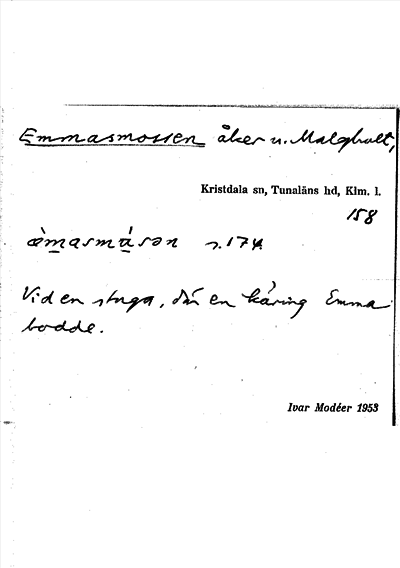 Emmasmossen åker u. Malghult,
Kristdala sn, Tunaläns hd, Klm. l.
158
æ̀masmȧsən s. 174.
Vid en stuga, där en käring Emma
bodde.
Ivar Modéer 1953